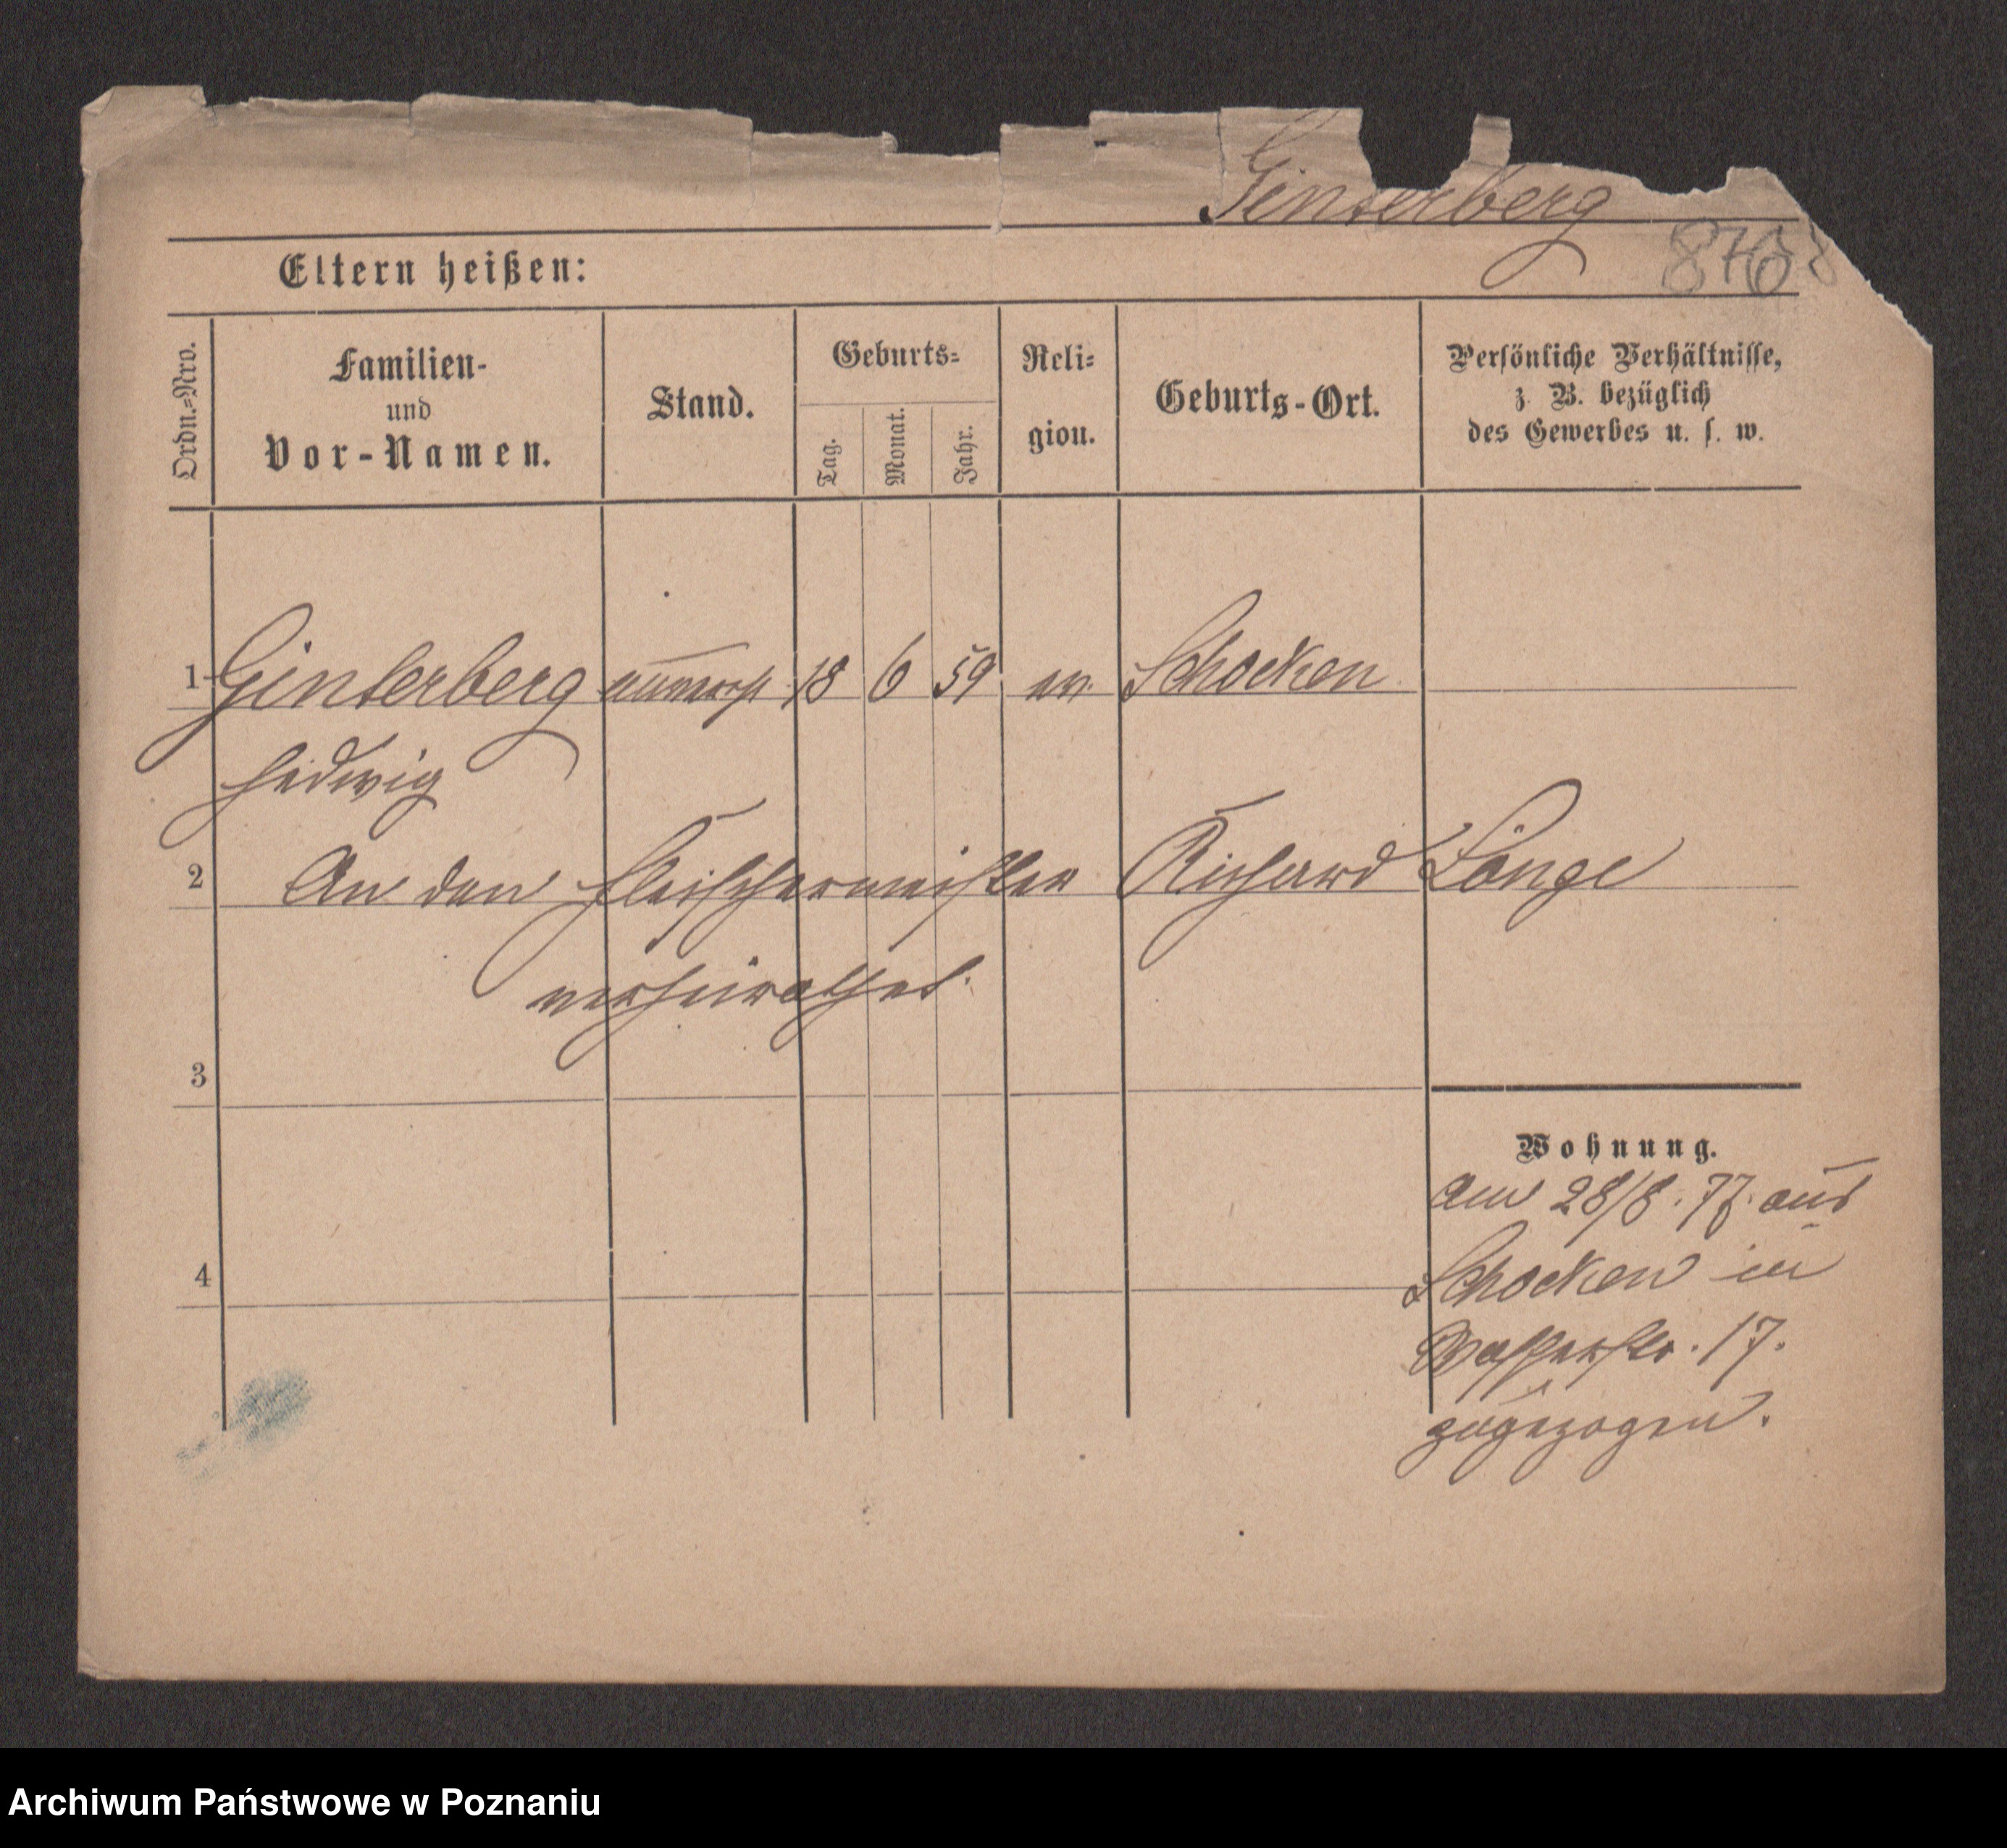 Ginterberg
876
Eltern heißen:
Ordn.=Nro.
Familien-
und
Vor-Namen.
Stand.
Geburts=
Tag.
Monat.
Jahr.
Reli=
gion.
Geburts-Ort.
Persönliche Verhältnisse,
z. B. bezüglich
des Gewerbes u. s. w.
1 Ginterberg unverh 18 6 59 ev. Schocken
Hedwig
2 An den Fleischermeister Richard Lange
verheirathet.
3
Wohnung.
Am 28/8. 77. aus
4 Schocken in
Wasserstr. 17.
zugezogen.
Archiwum Państwowe w Poznaniu